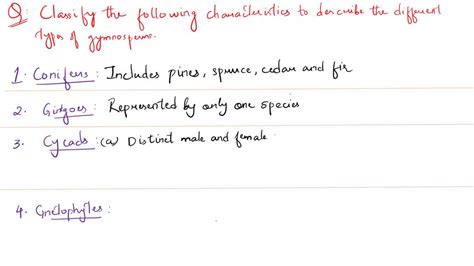 Q: Classify the following characteristics to describe the different
types of gymnosperms.
1. Conifers: Includes pines, spruce, cedar and fir
2. Ginkgoes: Represented by only one species
3. Cycads: (a) Distinct male and female
4. Gnetophytes: